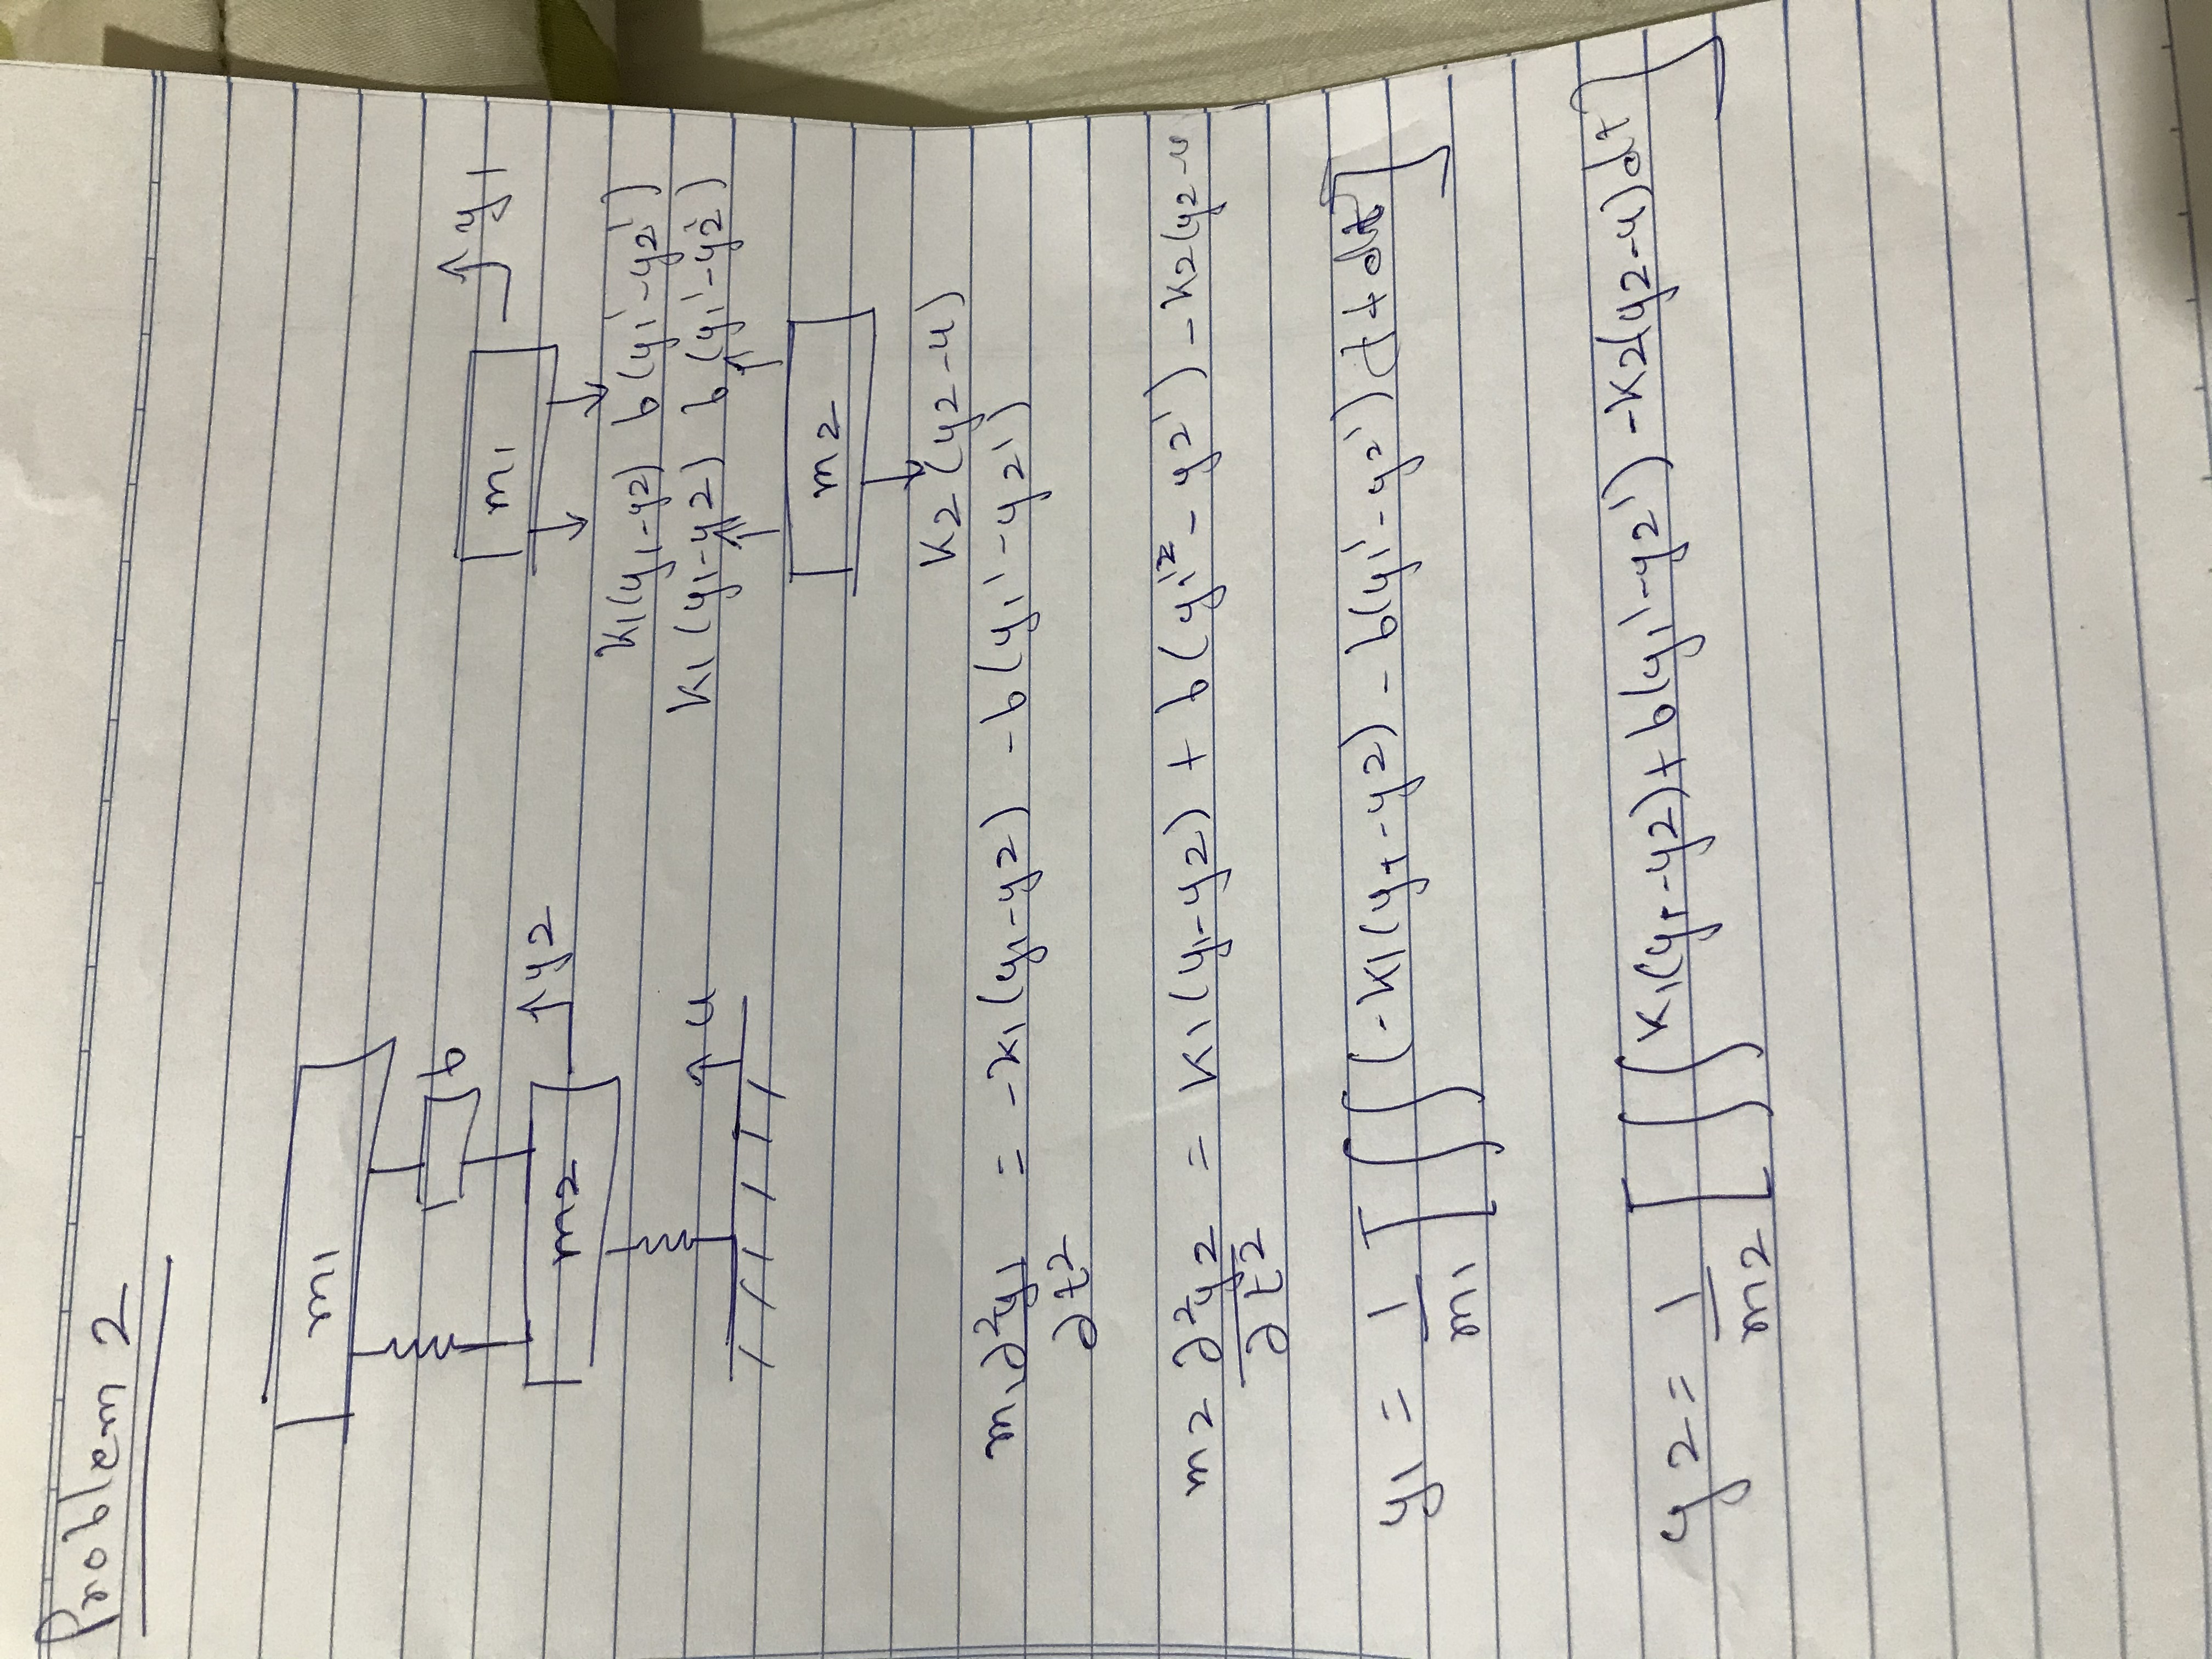 Problem 2
m1
b
m2
y2
u
m1
y1
K1(y1-y2) b(y1'-y2')
K1(y1-y2) b(y1'-y2')
m2
K2(y2-u)
m1∂²y1/∂t² = -K1(y1-y2) -b(y1'-y2')
m2 ∂²y2/∂t² = K1(y1-y2) + b(y1'²-y2') -K2(y2-u
y1 = 1/m1 [∫∫(-K1(y1-y2) -b(y1'-y2') dt dt]
y2 = 1/m2 [∫∫K1(y1-y2)+b(y1'-y2') -K2(y2-u)dt]